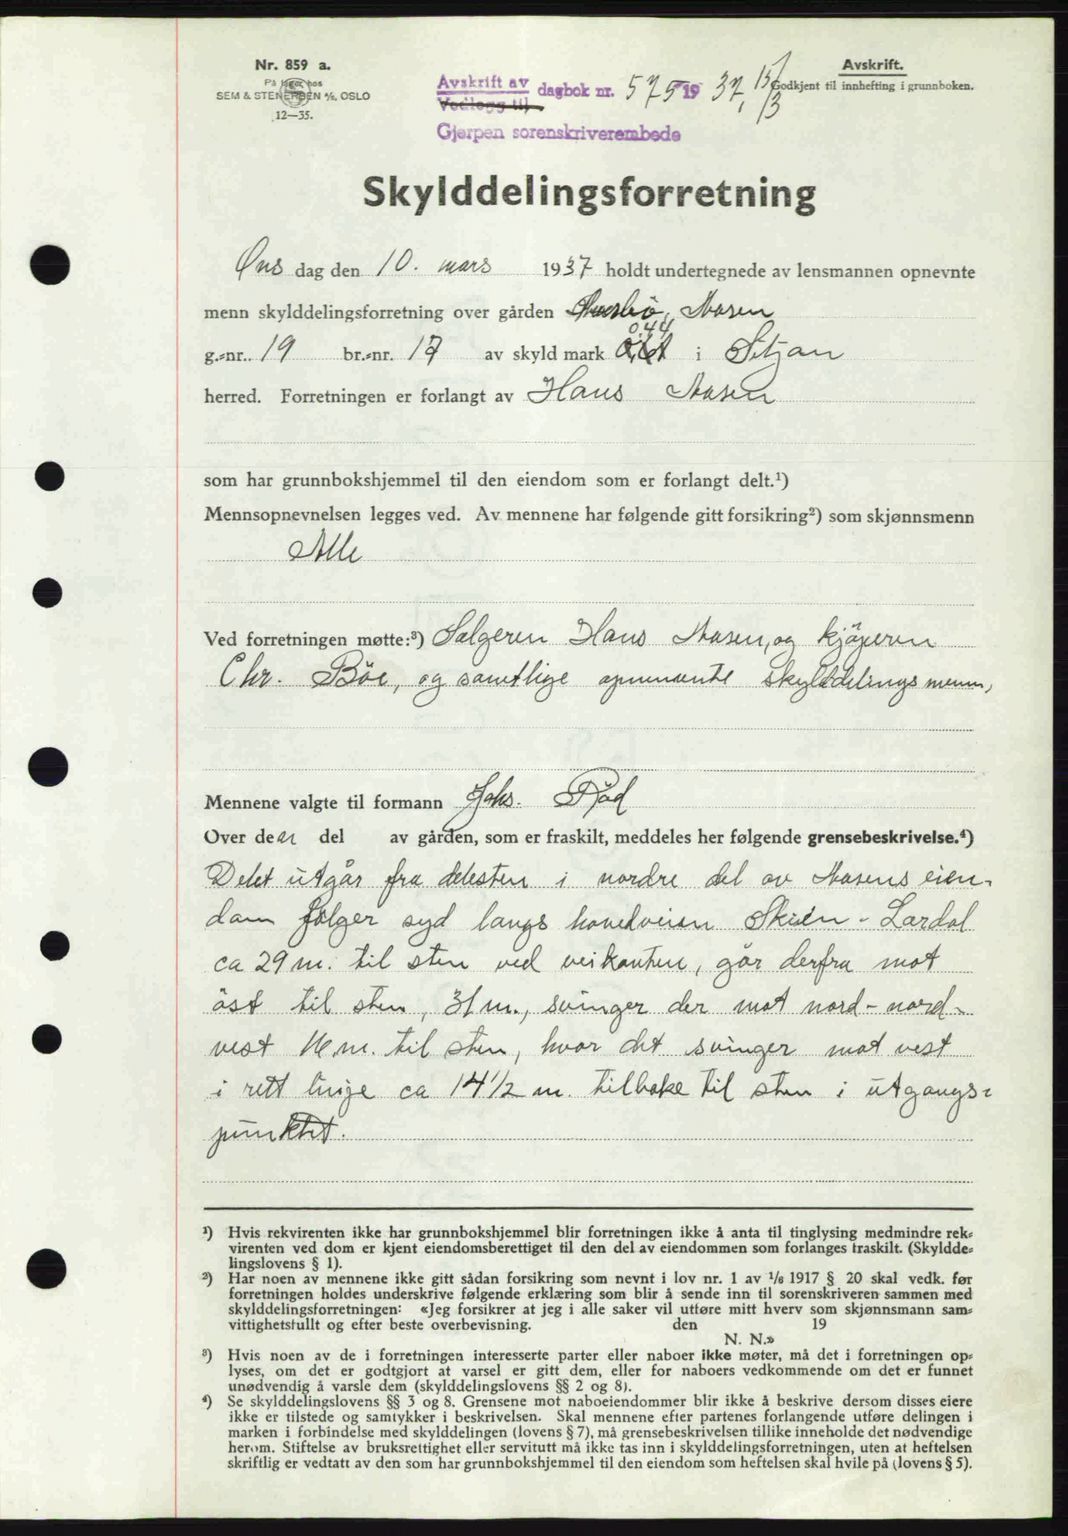 Nr. 859 a.
På lager hos
SEM & STENERSEN A/S, OSLO
12—35.
Avskrift av
Vedlegg til
dagbok nr. 575 19 37, 15/3
Gjerpen sorenskriverembede
Avskrift.
Godkjent til innhefting i grunnboken.
Skylddelingsforretning
Ons dag den 10. mars 1937 holdt undertegnede av lensmannen opnevnte
menn skylddelingsforretning over gården Aasen
g.-nr. 19 br.-nr. 17 av skyld mark 0,44 i Siljan
herred. Forretningen er forlangt av Hans Aasen
som har grunnbokshjemmel til den eiendom som er forlangt delt.¹)
Mennsopnevnelsen legges ved. Av mennene har følgende gitt forsikring²) som skjønnsmenn
Alle
Ved forretningen møtte:³) Selgeren Hans Aasen, og kjöperen
Chr. Böe, og samtlige opnevnte skylddelingsmenn,
Mennene valgte til formann Johs. Röd
Over deen del av gården, som er fraskilt, meddeles her følgende grensebeskrivelse.⁴)
Delet utgår fra delesten i nordre del av Aasens eien-
dom følger syd langs hovedveien Skien - Lardal
ca 29 m. til sten ved veikanten, går derfra mot
öst til sten, 31 m., svinger der mot nord-nord-
vest 16 m. til sten, hvor det svinger mot vest
i rett linje ca 14 1/2 m. tilbake til sten i utgangs-
punktet.
¹) Hvis rekvirenten ikke har grunnbokshjemmel blir forretningen ikke å anta til tinglysing medmindre rek-
virenten ved dom er kjent eiendomsberettiget til den del av eiendommen som forlanges fraskilt. (Skyldde-
lingslovens § 1).
²) Har noen av mennene ikke gitt sådan forsikring som nevnt i lov nr. 1 av 1/6 1917 § 20 skal vedk. før
forretningen holdes underskrive følgende erklæring som blir å sende inn til sorenskriveren sammen med
skylddelingsforretningen: «Jeg forsikrer at jeg i alle saker vil utføre mitt hverv som skjønnsmann sam-
vittighetsfullt og efter beste overbevisning. den 19
N. N.»
³) Hvis noen av de i forretningen interesserte parter eller naboer ikke møter, må det i forretningen op-
lyses, om det er godtgjort at varsel er gitt dem, eller for naboers vedkommende om det er funnet
unødvendig å varsle dem (skylddelingslovens §§ 2 og 8).
⁴) Se skylddelingslovens §§ 3 og 8. Grensene mot naboeiendommer blir ikke å beskrive dersom disses eiere
ikke er tilstede og samtykker i beskrivelsen. Skal mennene efter partenes forlangende utføre delingen i
marken i forbindelse med skylddelingen (lovens § 7), må grensebeskrivelsen tillike inneholde det nødvendige
herom. Stiftelse av bruksrettighet eller servitutt må ikke tas inn i skylddelingsforretningen, uten at heftelsen
skriftlig er vedtatt av den som har grunnbokshjemmel til den eiendom som heftelsen skal hvile på (lovens § 5).